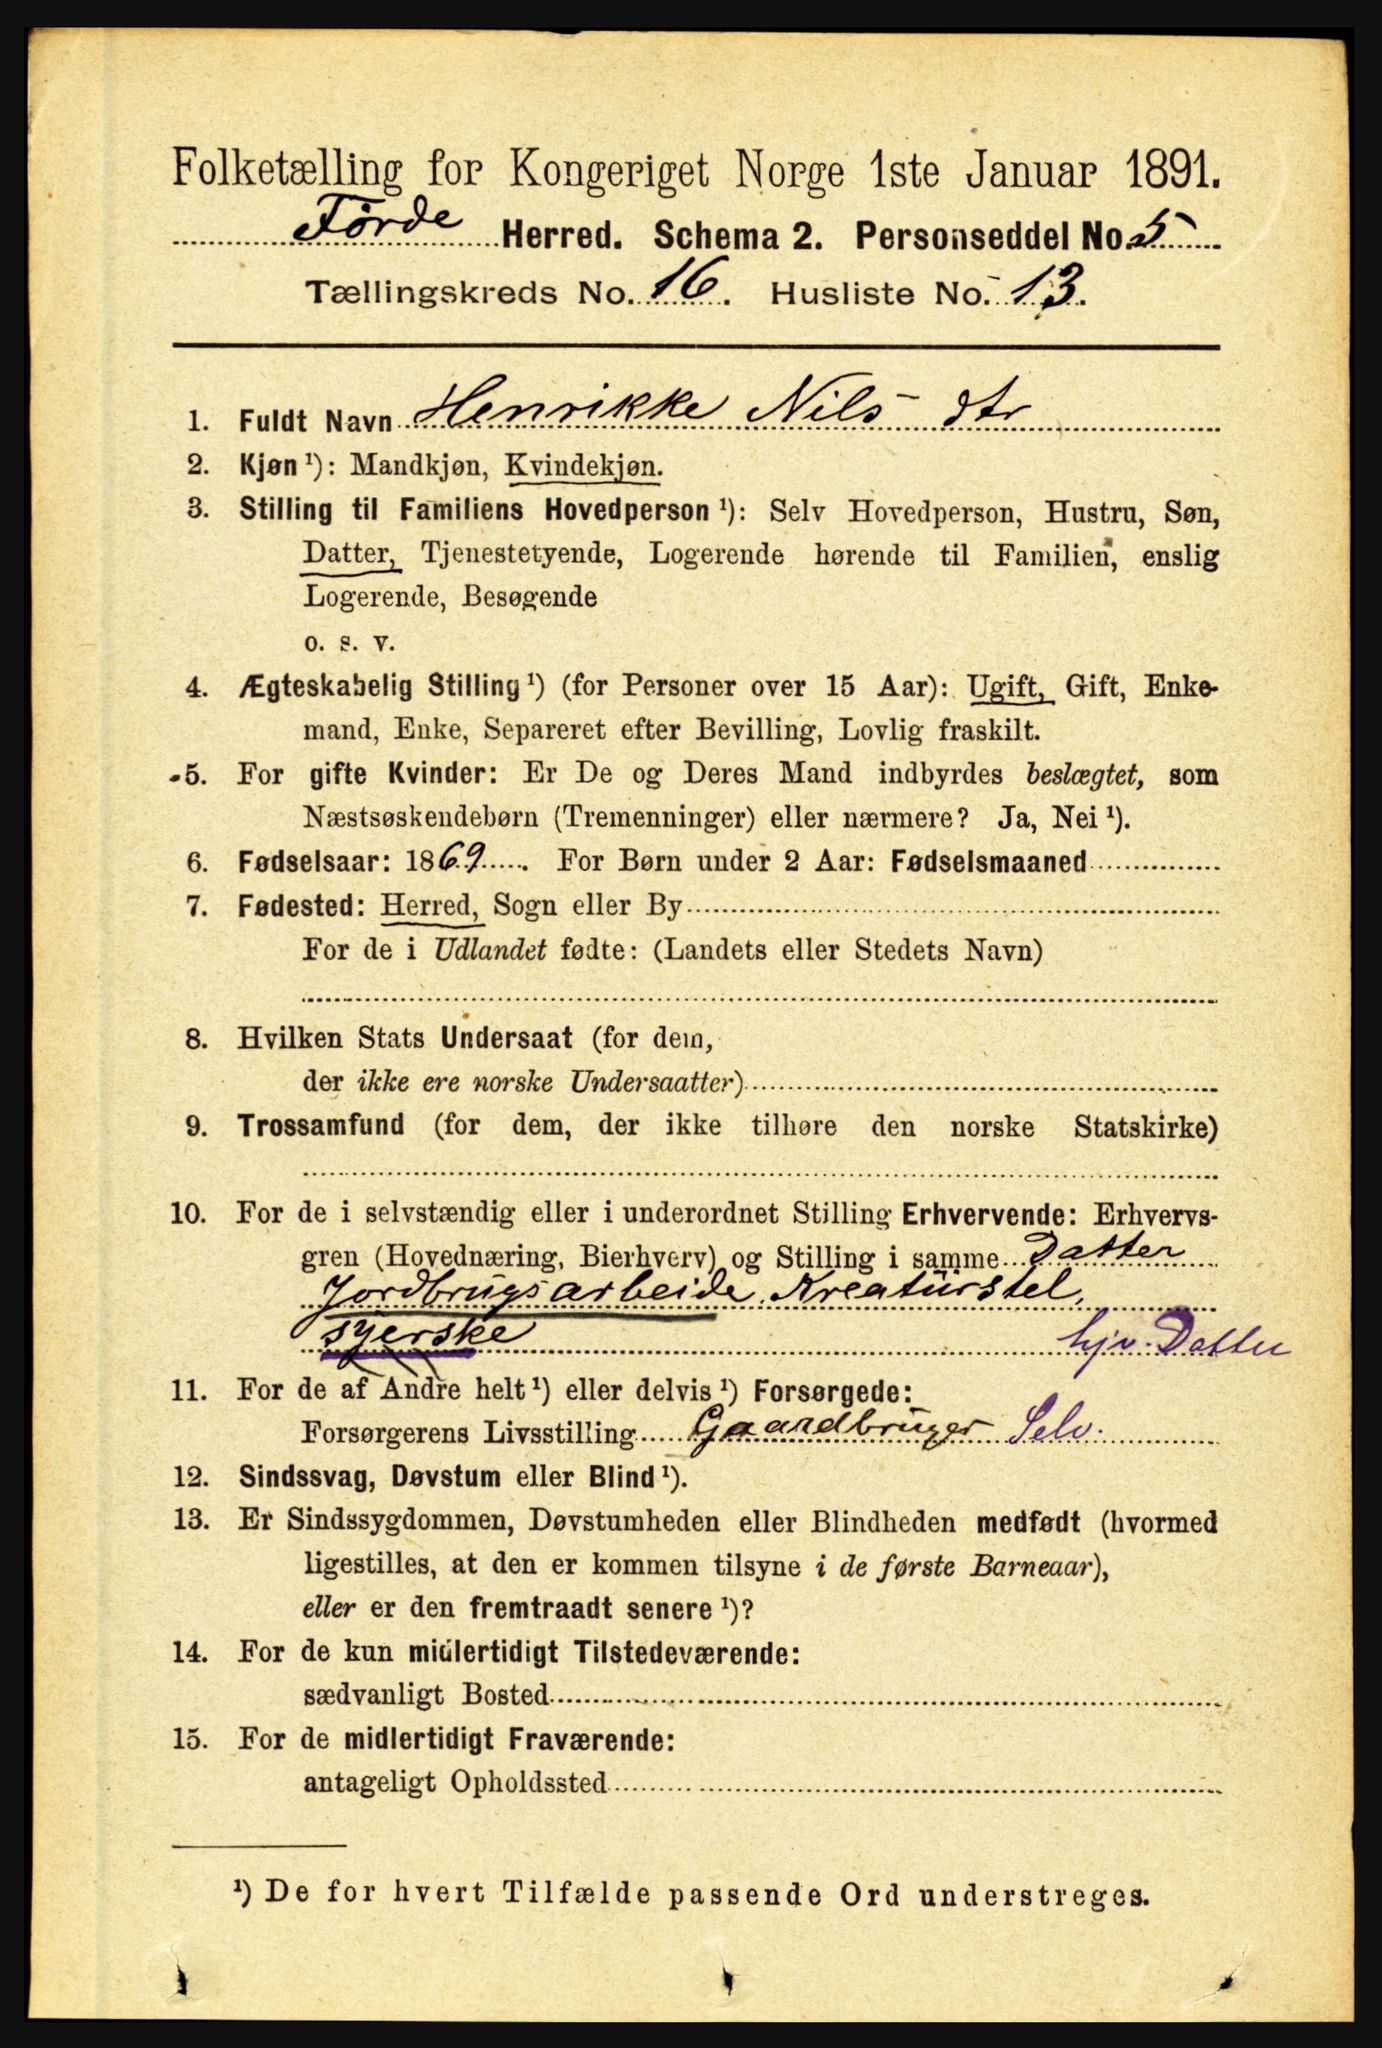 Folketælling for Kongeriget Norge 1ste Januar 1891.
Førde Herred. Schema 2. Personseddel No. 5
Tællingskreds No. 16. Husliste No. 13.
1. Fuldt Navn Henrikke Nils dtr
2. Kjøn ¹): Mandkjøn, Kvindekjøn.
3. Stilling til Familiens Hovedperson ¹): Selv Hovedperson, Hustru, Søn,
Datter, Tjenestetyende, Logerende hørende til Familien, enslig
Logerende, Besøgende
o. s. v.
4. Ægteskabelig Stilling ¹) (for Personer over 15 Aar): Ugift, Gift, Enke-
mand, Enke, Separeret efter Bevilling, Lovlig fraskilt.
5. For gifte Kvinder: Er De og Deres Mand indbyrdes beslægtet, som
Næstsøskendebørn (Tremenninger) eller nærmere? Ja, Nei ¹).
6. Fødselsaar: 1869. For Børn under 2 Aar: Fødselsmaaned
7. Fødested: Herred, Sogn eller By
For de i Udlandet fødte: (Landets eller Stedets Navn)
8. Hvilken Stats Undersaat (for dem,
der ikke ere norske Undersaatter)
9. Trossamfund (for dem, der ikke tilhøre den norske Statskirke)
10. For de i selvstændig eller i underordnet Stilling Erhvervende: Erhvervs-
gren (Hovednæring, Bierhverv) og Stilling i samme Datter
Jordbrugsarbeide, Kreaturstel,
syerske hjv. Datter
11. For de af Andre helt ¹) eller delvis ¹) Forsørgede:
Forsørgerens Livsstilling Gaardbruger Selv.
12. Sindssvag, Døvstum eller Blind ¹).
13. Er Sindssygdommen, Døvstumheden eller Blindheden medfødt (hvormed
ligestilles, at den er kommen tilsyne i de første Barneaar),
eller er den fremtraadt senere ¹)?
14. For de kun midlertidigt Tilstedeværende:
sædvanligt Bosted
15. For de midlertidigt Fraværende:
antageligt Opholdssted
¹) De for hvert Tilfælde passende Ord understreges.